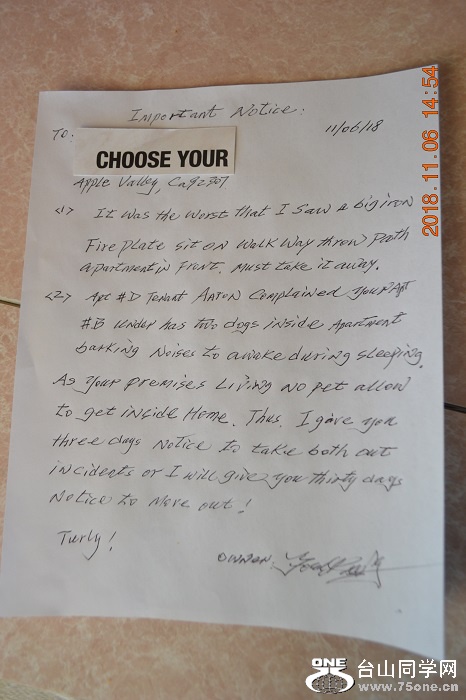 Important Notice:
To:
11/06/18
CHOOSE YOUR
Apple Valley, Ca 92307
<1> It was the worst that I saw a big iron
Fire plate sit on walk way throw path
apartment in Front. Must take it away.
<2> Apt #D Tenant Aaron Complained your Apt
#B under has two dogs inside apartment
barking noises to awake during sleeping.
As your premises Living no pet allow
to get inside Home. Thus, I gave you
three days notice to take both out
incidents or I will give you thirty days
Notice to move out!
Turly!
owner:
2018.11.06 14:54
ONE
75
台山同学网
www.75one.cn